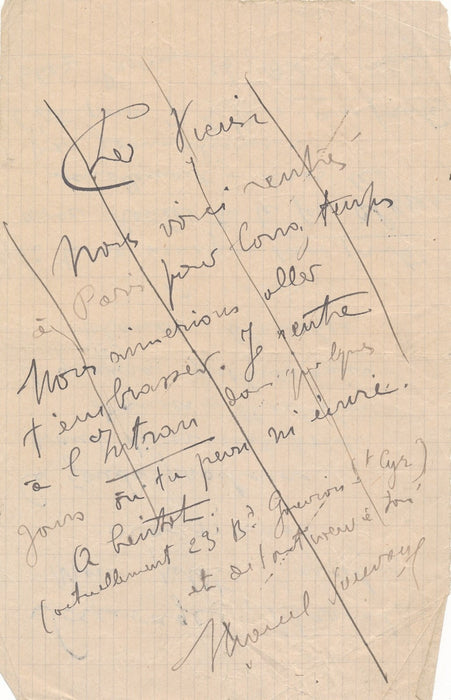 Cher Vieux
Nous voici rentrés
à Paris pour long temps
Nous aimerions aller
t'embrasser. Je rentre
à l'Intran dans quelques
jours où tu peux m'écrire.
A bientôt.
(actuellement 23 Bd Gouvion-St Cyr)
et
Marcel Sauvage